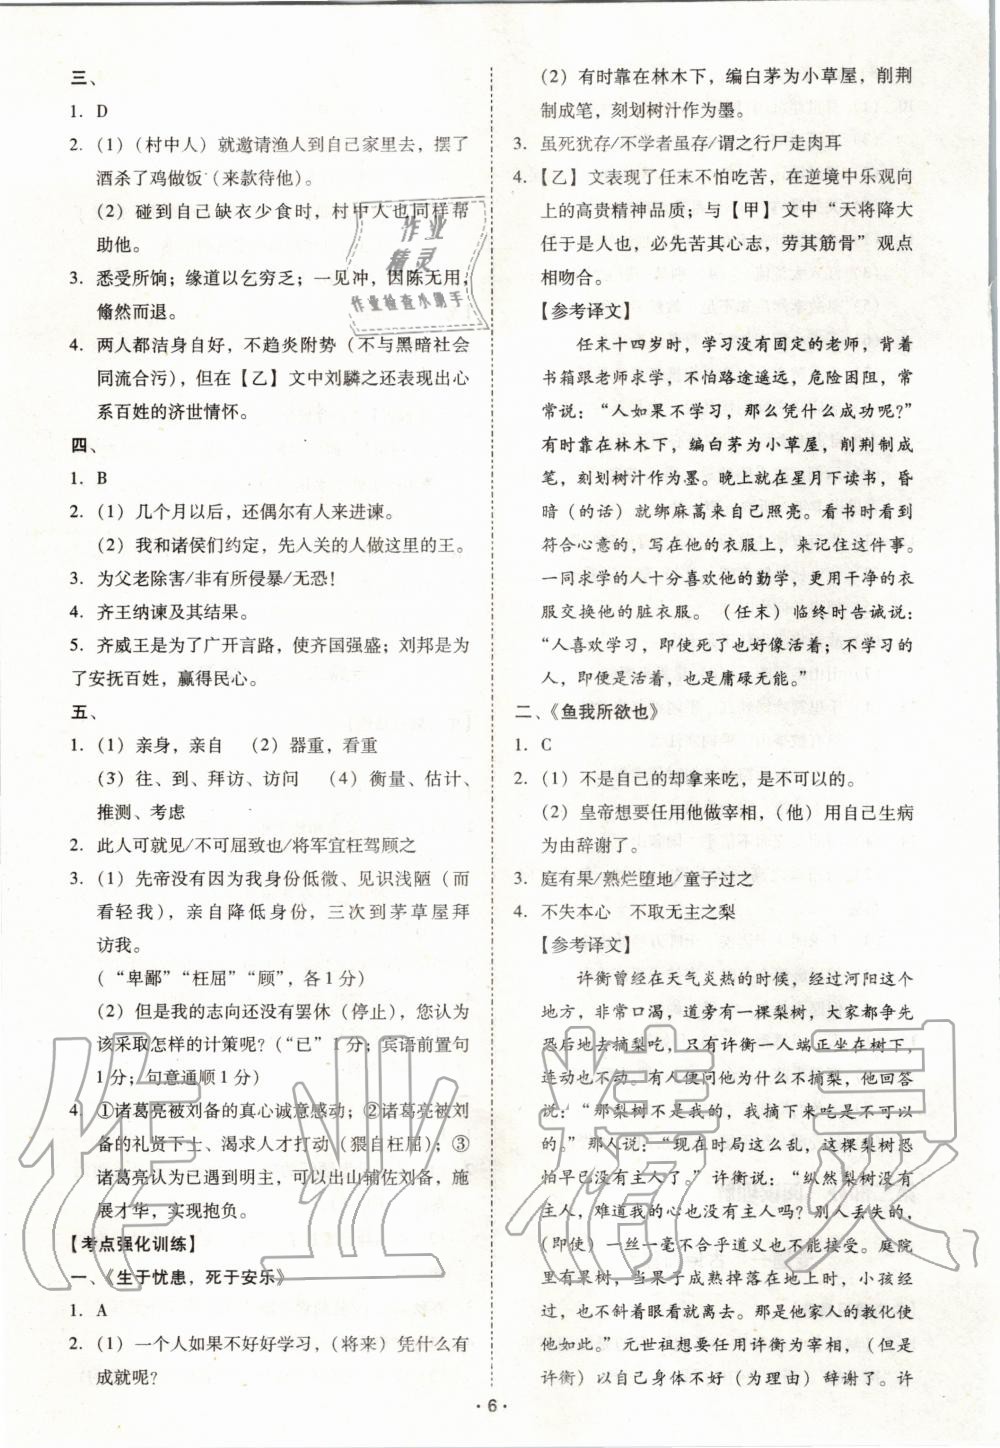 三、
1. D
2. (1)(村中人)就邀请渔人到自己家里去，摆了
酒杀了鸡做饭(来款待他)。
(2)碰到自己缺衣少食时，村中人也同样帮
助他。
3. 悉受所饷；缘道以乞穷乏；一见冲，因陈无用，
翛然而退。
4. 两人都洁身自好，不趋炎附势(不与黑暗社会
同流合污)，但在【乙】文中刘驎之还表现出心
系百姓的济世情怀。
四、
1. B
2. (1)几个月以后，还偶尔有人来进谏。
(2)我和诸侯们约定，先入关的人做这里的王。
3. 为父老除害/非有所侵暴/无恐!
4. 齐王纳谏及其结果。
5. 齐威王是为了广开言路，使齐国强盛；刘邦是为
了安抚百姓，赢得民心。
五、
1. (1)亲身，亲自 (2)器重，看重
(3)往、到、拜访、访问 (4)衡量、估计、
推测、考虑
2. 此人可就见/不可屈致也/将军宜枉驾顾之
3. (1)先帝没有因为我身份低微、见识浅陋(而
看轻我)，亲自降低身份，三次到茅草屋拜
访我。
(“卑鄙”“枉屈”“顾”，各1分)
(2)但是我的志向还没有罢休(停止)，您认为
该采取怎样的计策呢?(“已”1分；宾语前置句
1分；句意通顺1分)
4. ①诸葛亮被刘备的真心诚意感动；②诸葛亮被刘
备的礼贤下士、渴求人才打动(猥自枉屈)；③
诸葛亮已遇到明主，可以出山辅佐刘备，施
展才华，实现抱负。
【考点强化训练】
一、《生于忧患，死于安乐》
1. A
2. (1)一个人如果不好好学习，(将来)凭什么有
成就呢?
(2)有时靠在林木下，编白茅为小草屋，削荆
制成笔，刻划树汁作为墨。
3. 虽死犹存/不学者虽存/谓之行尸走肉耳
4. 【乙】文表现了任末不怕吃苦，在逆境中乐观向
上的高贵精神品质；与【甲】文中“天将降大
任于是人也，必先苦其心志，劳其筋骨”观点
相吻合。
【参考译文】
任末十四岁时，学习没有固定的老师，背着
书箱跟老师求学，不怕路途遥远，危险困阻，常
常说：“人如果不学习，那么凭什么成功呢?”
有时靠在林木下，编白茅为小草屋，削荆制成
笔，刻划树汁作为墨。晚上就在星月下读书，昏
暗(的话)就绑麻蒿来自己照亮。看书时看到
符合心意的，写在他的衣服上，来记住这件事。
一同求学的人十分喜欢他的勤学，更用干净的衣
服交换他的脏衣服。(任末)临终时告诫说：
“人喜欢学习，即使死了也好像活着；不学习的
人，即便是活着，也是庸碌无能。”
二、《鱼我所欲也》
1. C
2. (1)不是自己的却拿来吃，是不可以的。
(2)皇帝想要任用他做宰相，(他)用自己生病
为由辞谢了。
3. 庭有果/熟烂堕地/童子过之
4. 不失本心 不取无主之梨
【参考译文】
许衡曾经在天气炎热的时候，经过河阳这个
地方，非常口渴，道旁有一棵梨树，大家都争先
恐后地去摘梨吃，只有许衡一人端正坐在树下，
连动也不动。有人便问他为什么不摘梨，他回答
说：“那梨树不是我的，我摘下来吃是不可以
的。”那人说：“现在时局这么乱，这棵梨树恐
怕早已没有主人了。”许衡说：“纵然梨树没有
主人，难道我的心也没有主人吗? 别人丢失的，
(即使)一丝一毫不合乎道义也不能接受。庭院
里有果树，当果子成熟掉落在地上时，小孩经
过，也不斜着眼看就离去。那是他家人的教化使
他如此。”元世祖想要任用许衡为宰相，(但是
许衡)以自己身体不好(为理由)辞谢了。许
·6·
作业
精灵
作业检查小助手
作业精灵